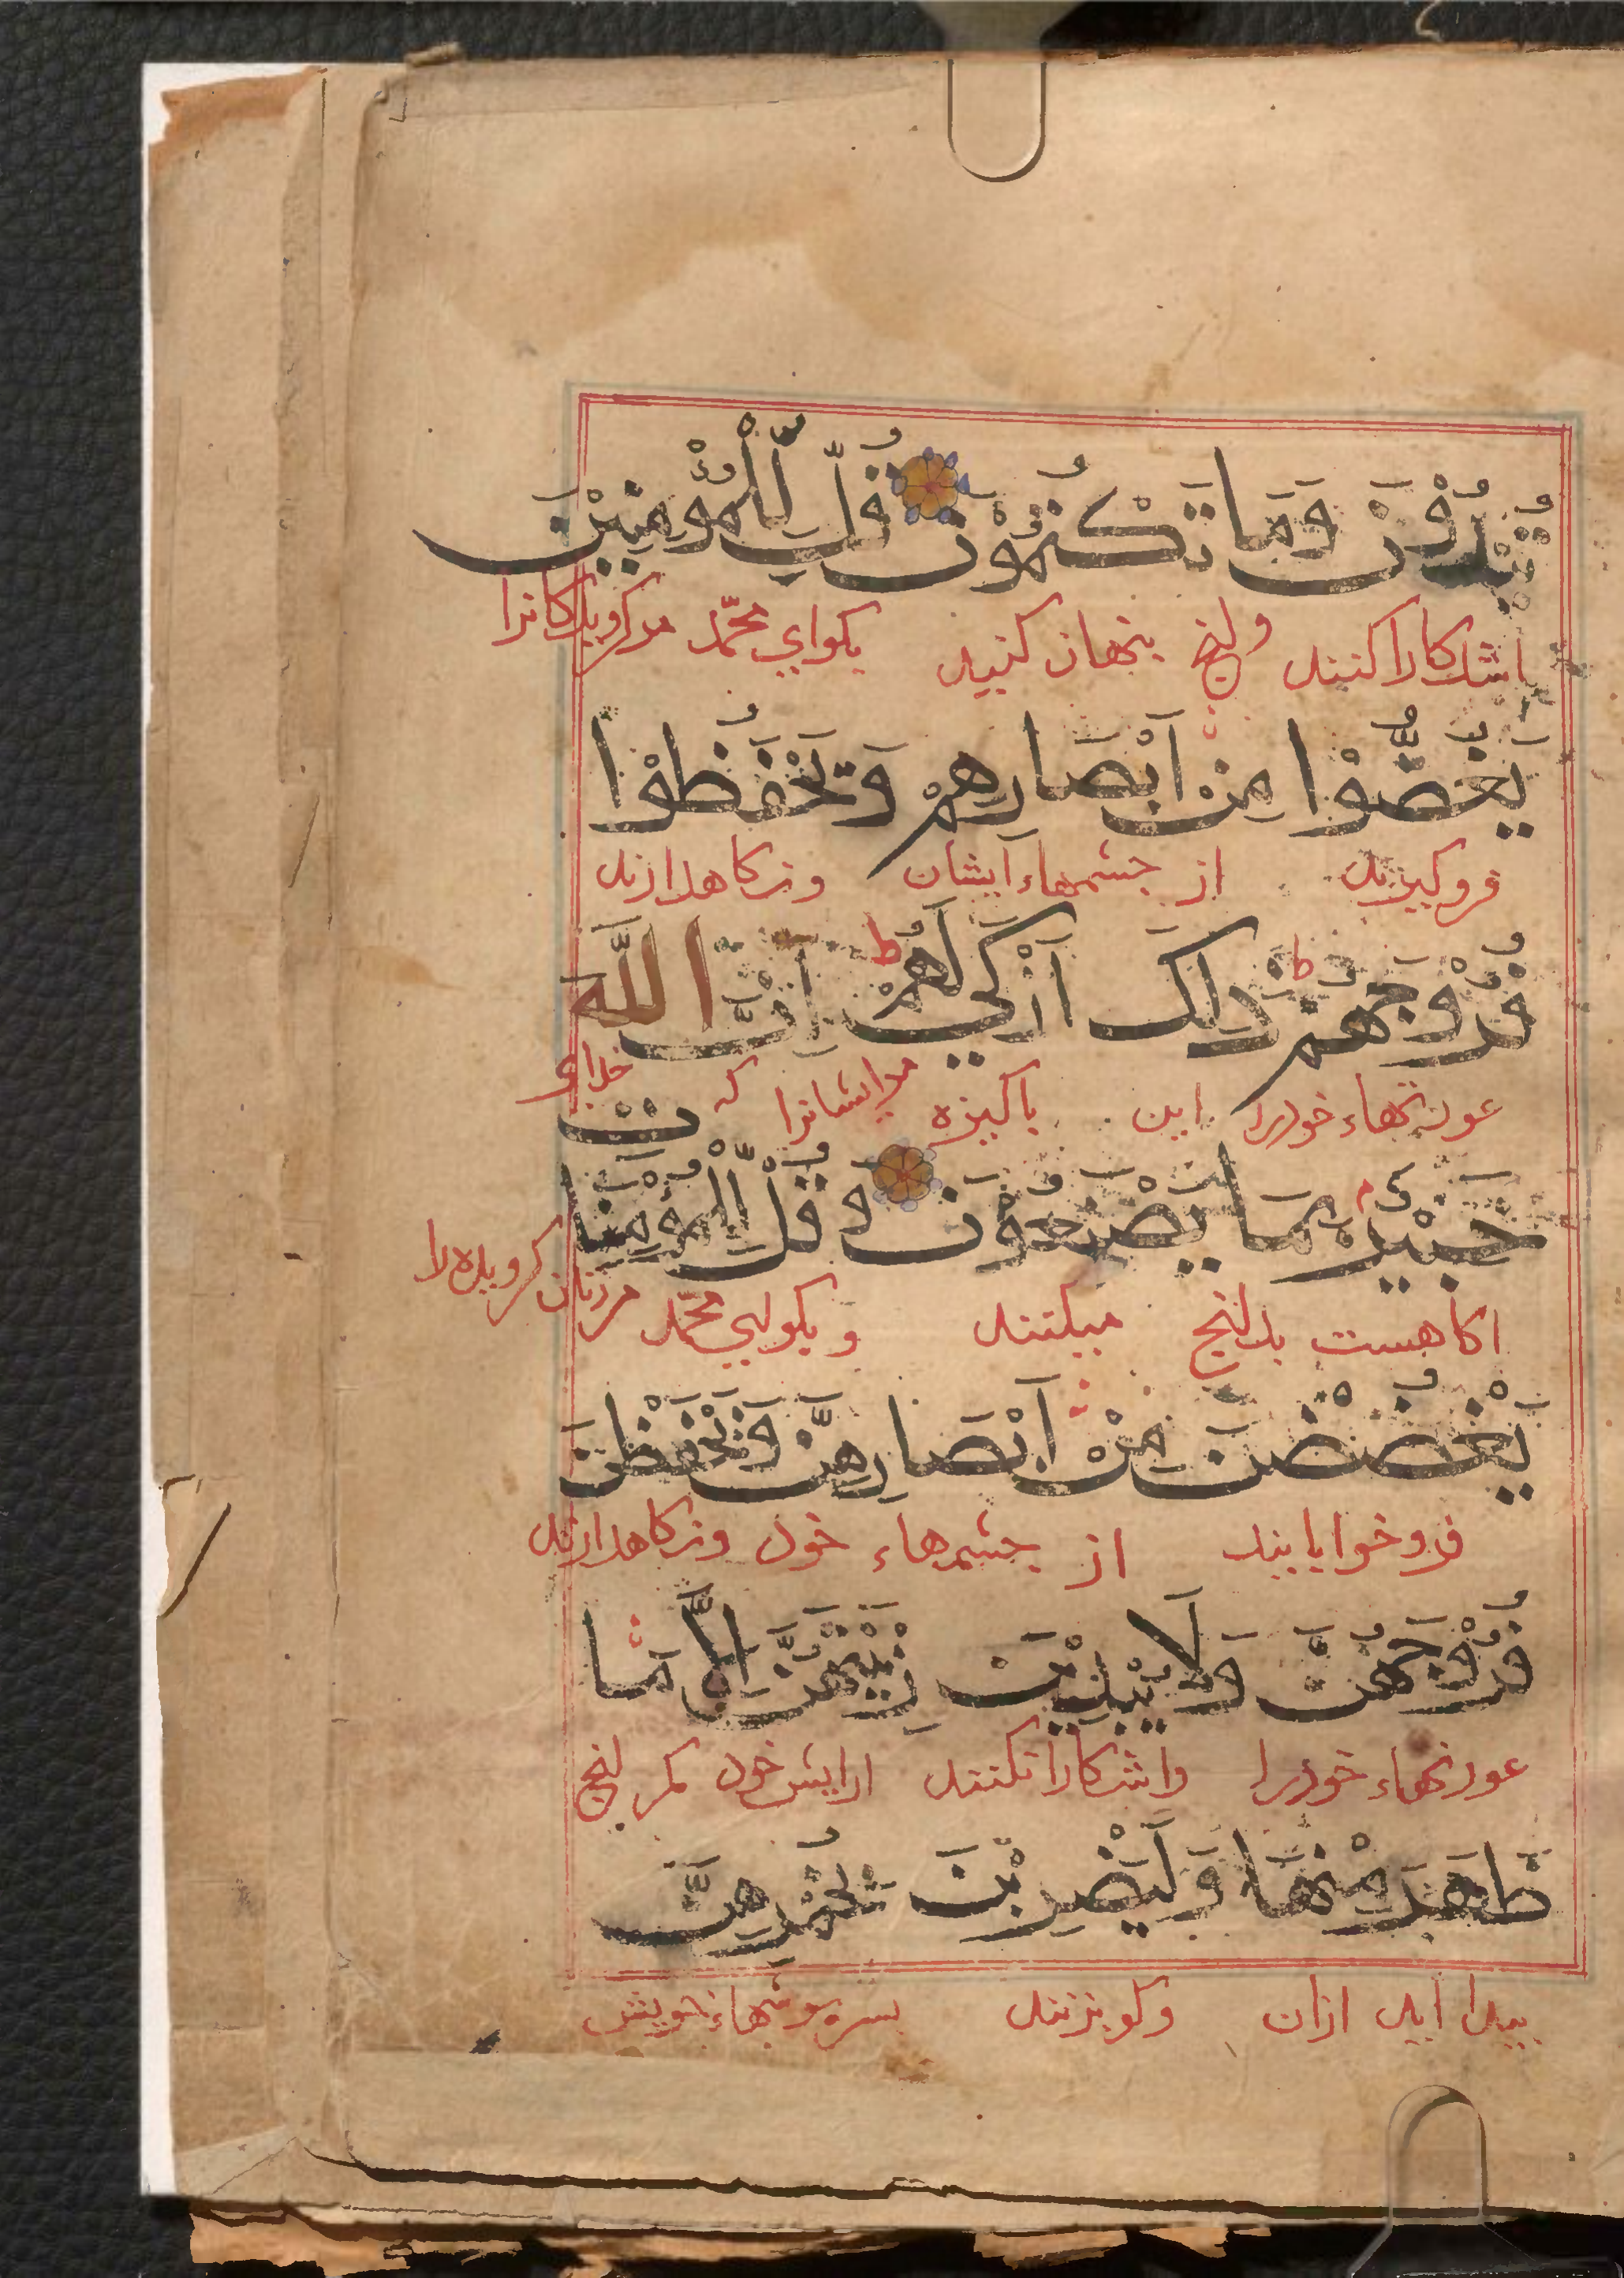 تُبْدُوْنَ وَمَا تَكْتُمُوْنَ قُلْ لِّلْمُؤْمِنِيْنَ
اشكارا كنند ولنچ بنهان كنيد بكو اي محمّد مر كرويدكانرا
يَغُضُّوْا مِنْ اَبْصَارِهِمْ وَيَحْفَظُوْا
فرو كيرند از جشمهاء ايشان ونكاه دارند
فُرُوْجَهُمْ ط ذٰلِكَ اَزْكٰي لَهُمْ ط اِنَّ اللّٰهَ
عورتهاء خود را اين باكيزه مر ايشانرا كه خداى
خَبِيْرٌ بِمَا يَصْنَعُوْنَ وَقُلْ لِّلْمُؤْمِنَا
ت
اكاهست بدلنچ ميكنند و بكو اي محمّد مر زنان كرويده را
يَغْضُضْنَ مِنْ اَبْصَارِهِنَّ وَيَحْفَظْنَ
فرو خوابانند از جشمهاء خود ونكاه دارند
فُرُوْجَهُنَّ وَلَا يُبْدِيْنَ زِيْنَتَهُنَّ اِلَّا مَا
عورتهاء خود را واشكارا نكنند ارايش خود مكر لنچ
ظَهَرَ مِنْهَا وَلْيَضْرِبْنَ بِخُمُرِهِنَّ
بيدا ايد ازان وكو بزنند بسربوشهاء خويش